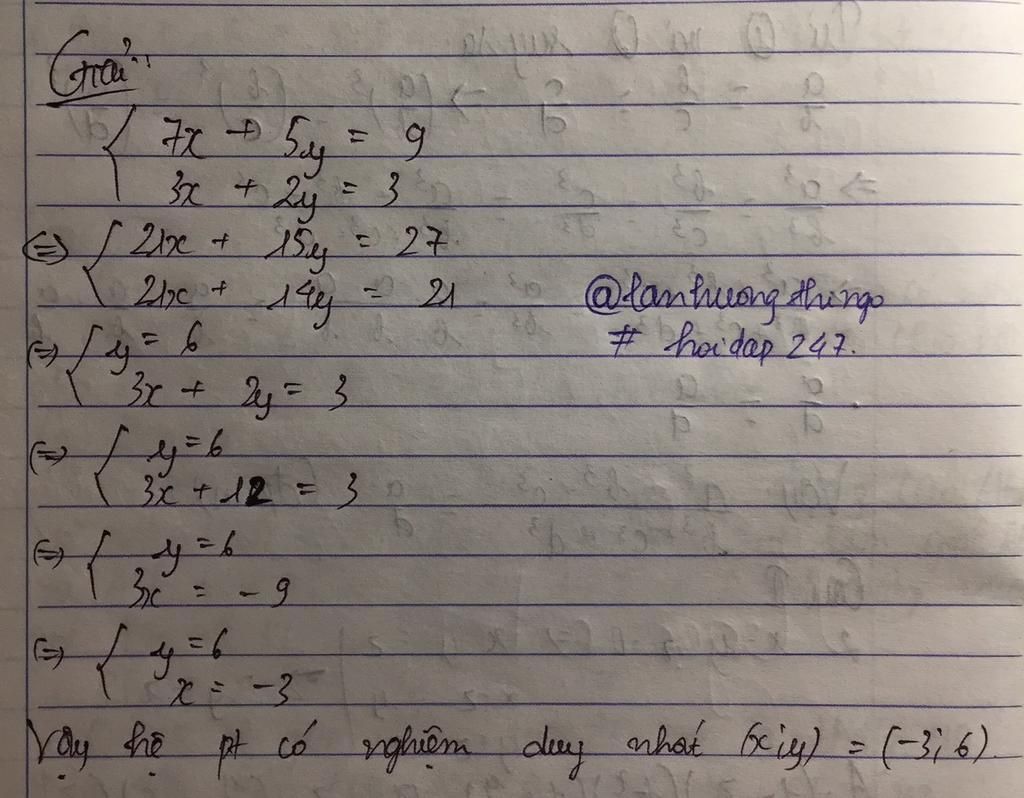 Giải:
7x + 5y = 9
3x + 2y = 3
(=) 21x + 15y = 27
21x + 14y = 21
@lanhuongthingo
# hoidap 247.
(=) y = 6
3x + 2y = 3
(=) y = 6
3x + 12 = 3
(=) y = 6
3x = -9
(=) y = 6
x = -3
Vậy hệ pt có nghiệm duy nhất (x;y) = (-3; 6).